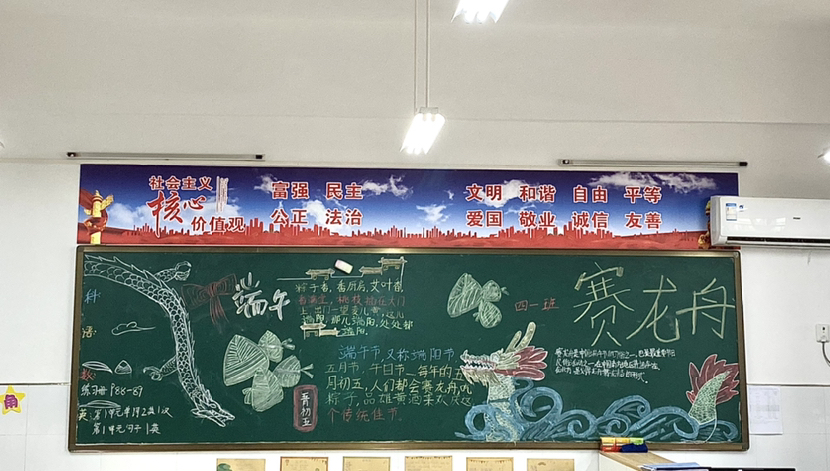 社会主义
核心
价值观
富强 民主
公正 法治
文明 和谐 自由 平等
爱国 敬业 诚信 友善
科
语:
数:
练习册 P88-89
英:
第1单元单词2英1汉
第1单元句子1英
端午
粽子香,香厨房,艾叶香,
香满堂,桃枝插在大门
上,出门一望麦儿黄,这儿
端阳,那儿端阳,处处都
端阳。
端午节,又称端阳节
五月节,午日节,每年的五
月初五,人们都会赛龙舟,吃
粽子,品雄黄酒来
个传统佳节。
五月初五
四一班
赛龙舟